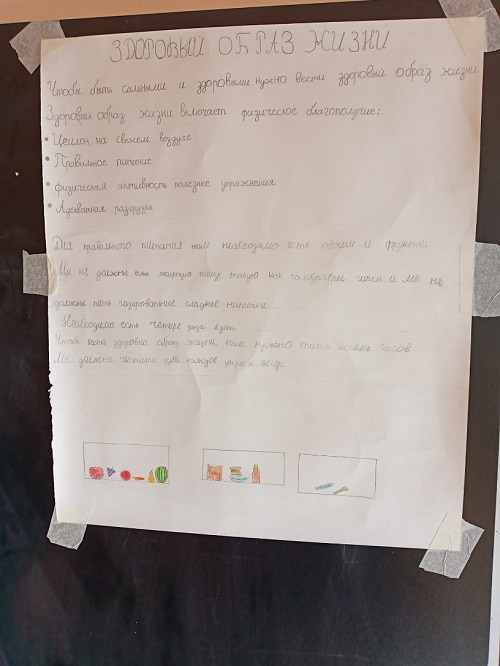 ЗДОРОВЫЙ ОБРАЗ ЖИЗНИ
Чтобы быть сильными и здоровыми нужно вести здоровый образ жизни
Здоровый образ жизни включает физическое благополучие:
на свежем воздухе
• Правильное питание
• физическая активность полезные упражнения
• Адекватная разгрузка
Для правильного питания нам необходимо есть овощи и фрукты.
Мы не должны есть жирную пищу такую как гамбургеры чипсы и мы не
должны пить газированные сладкие напитки
Необходимо есть четыре раза в день
Чтобы вести здоровый образ жизни, нам нужно спать восемь часов
Мы должны чистить зубы каждое утро и вечер